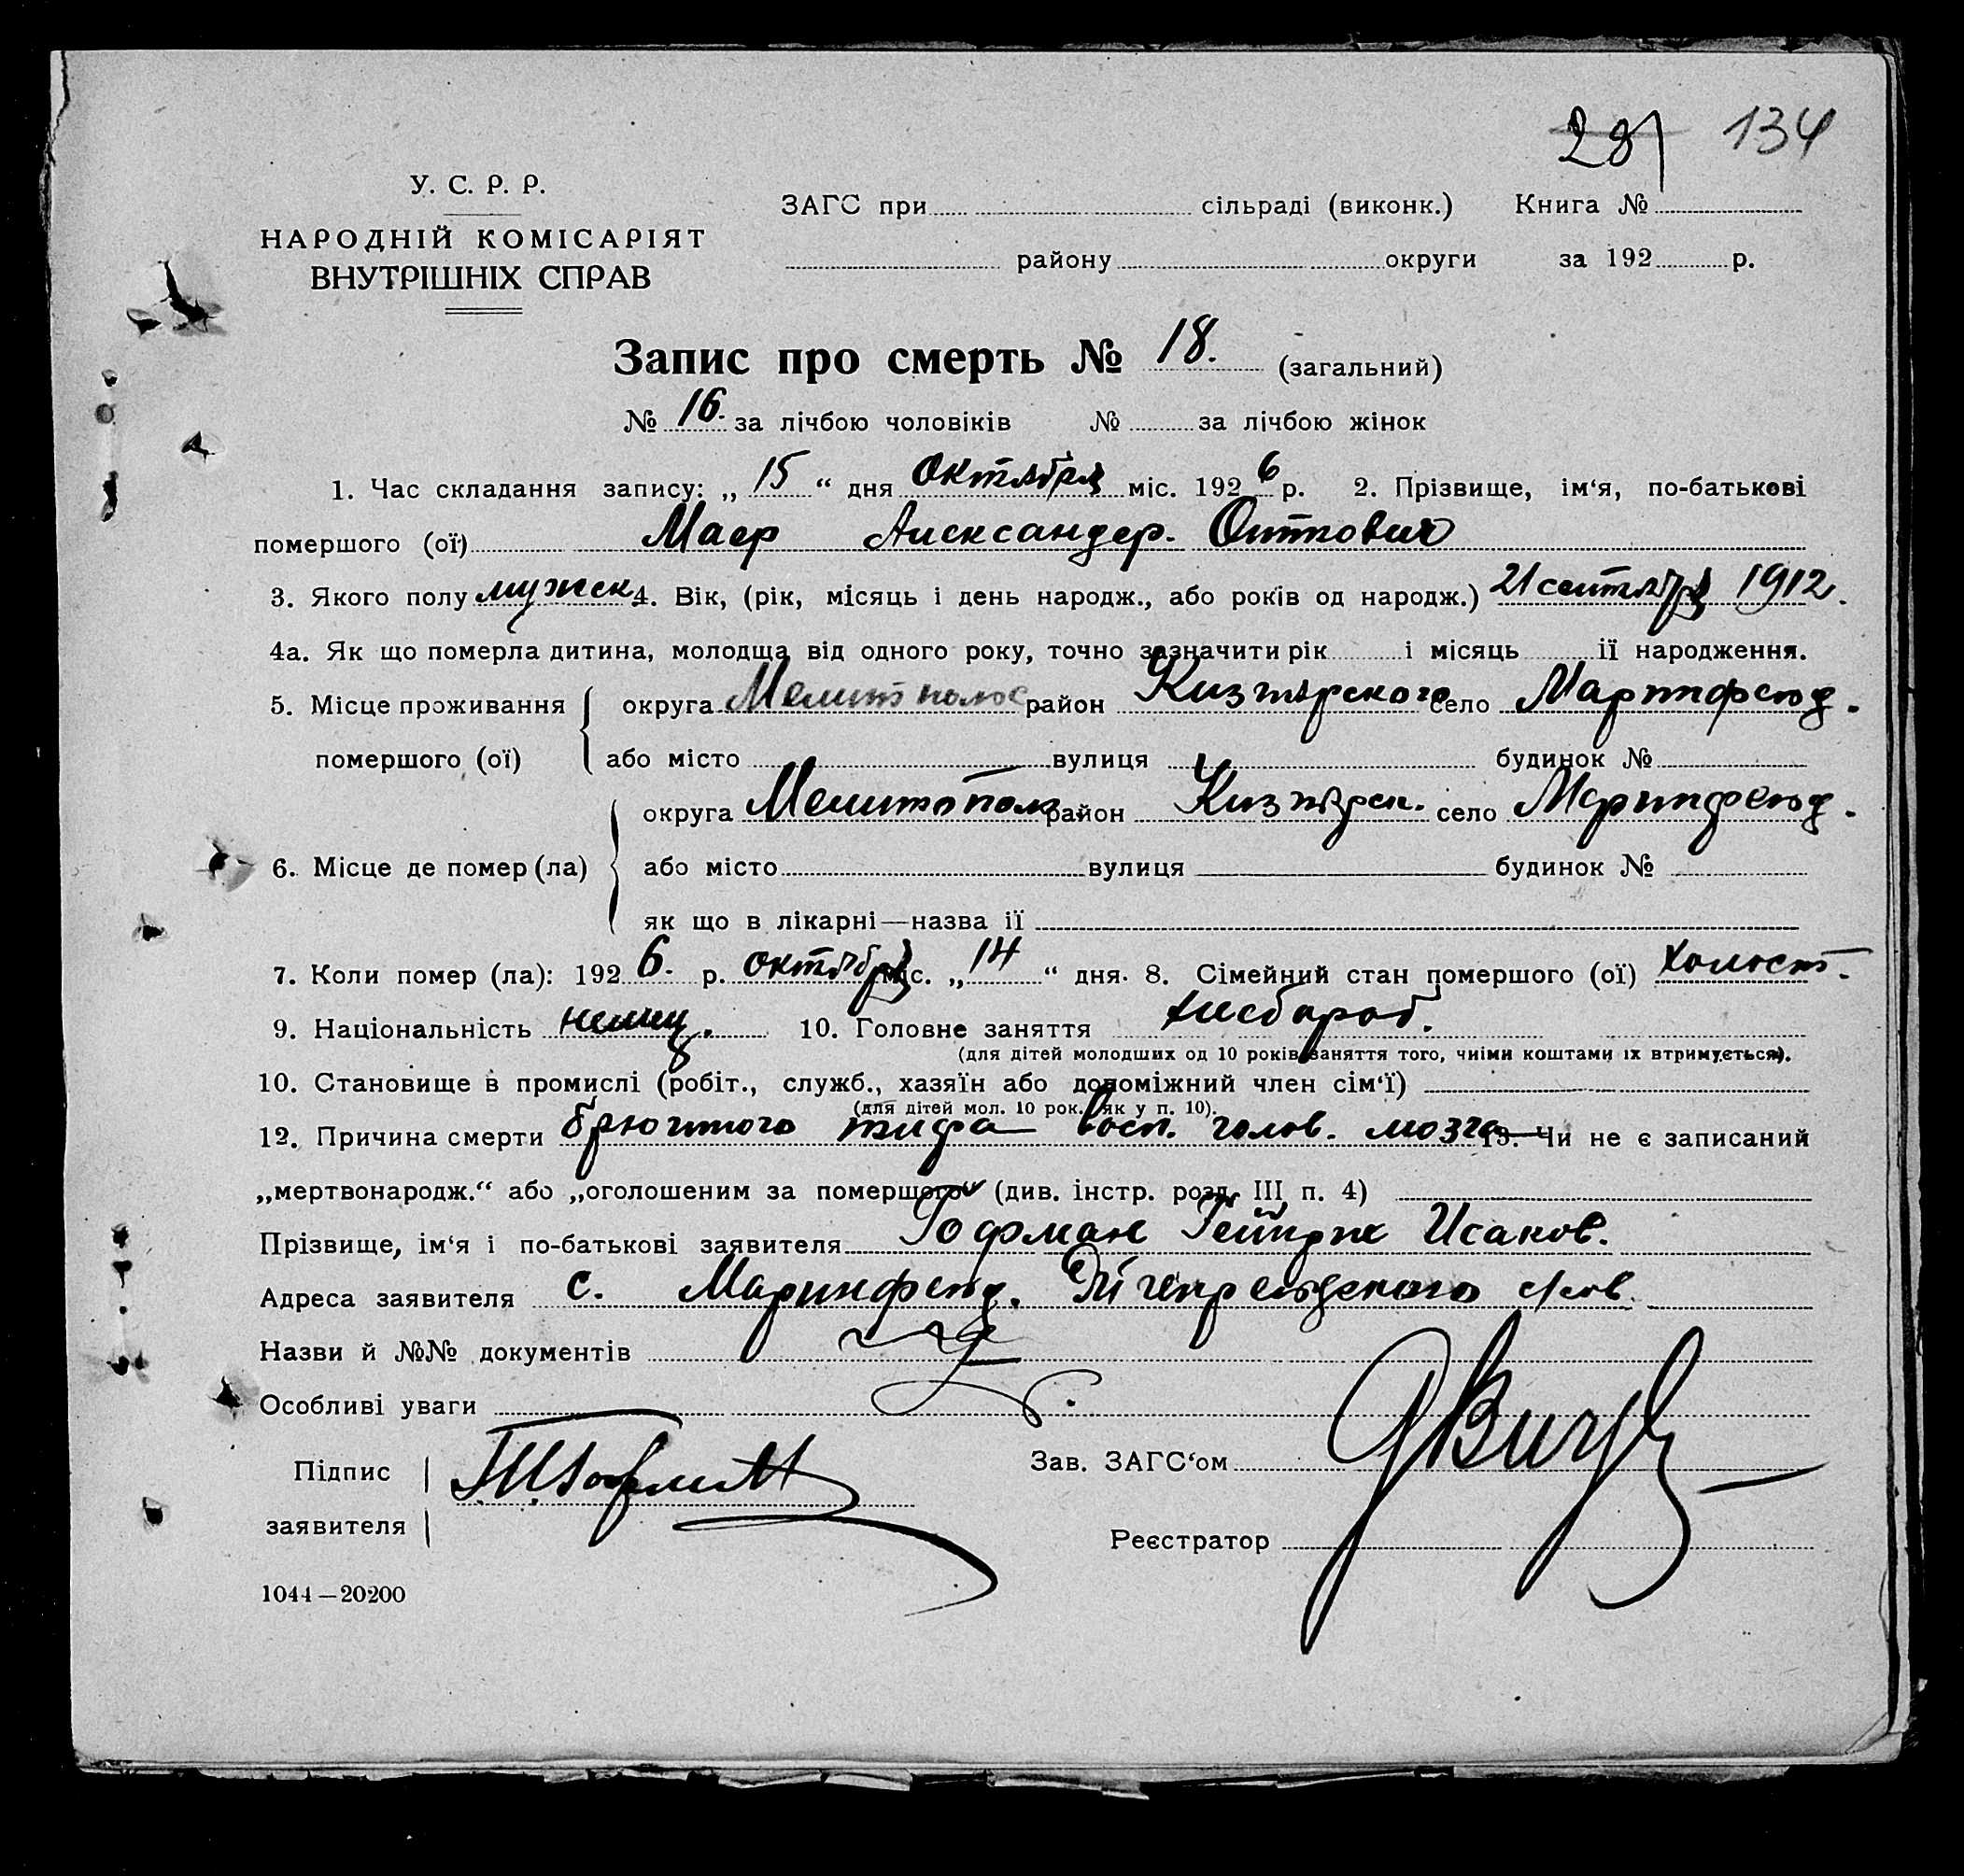 281 134
У. С. Р. Р.
НАРОДНІЙ КОМІСАРІЯТ
ВНУТРІШНІХ СПРАВ
ЗАГС при сільраді (виконк.) Книга №
району округи за 192 р.
Запис про смерть № 18. (загальний)
№ 16. за лічбою чоловіків № за лічбою жінок
1. Час складання запису: „ 15 “ дня Октября міс. 192 6 р. 2. Прізвище, ім‘я, по-батькові
помершого (ої) Маер Александер. Оттович
3. Якого полу мужск. 4. Вік, (рік, місяць і день народж., або років од народж.) 21 сентября 1912.
4а. Як що померла дитина, молодща від одного року, точно зазначити рік і місяць ії народження.
5. Місце проживання округа Мелитополь район село
помершого (ої) або місто вулиця будинок №
округа Мелитополь район село
6. Місце де помер (ла) або місто вулиця будинок №
як що в лікарні—назва ії
7. Коли помер (ла): 192 6. р. октября міс. „ 14 “ дня. 8. Сімейний стан помершого (ої) Холост.
9. Національність немец. 10. Головне заняття хлебороб.
(для дітей молодших од 10 років заняття того, чиїми коштами їх втримується).
10. Становище в промислі (робіт., служб., хазяїн або допоміжний член сім‘ї)
(для дітей мол. 10 рок. як у п. 10).
12. Причина смерти брюшного тифа восп. голов. мозга 13. Чи не є записаний
„мертвонародж.“ або „оголошеним за помершого“ (див. інстр. розд. III п. 4)
Прізвище, ім‘я і по-батькові заявителя Гофман Исаков.
Адреса заявителя с.
Назви й №№ документів
Особливі уваги
Підпис
заявителя
Зав. ЗАГС‘ом
Реєстратор
1044—20200